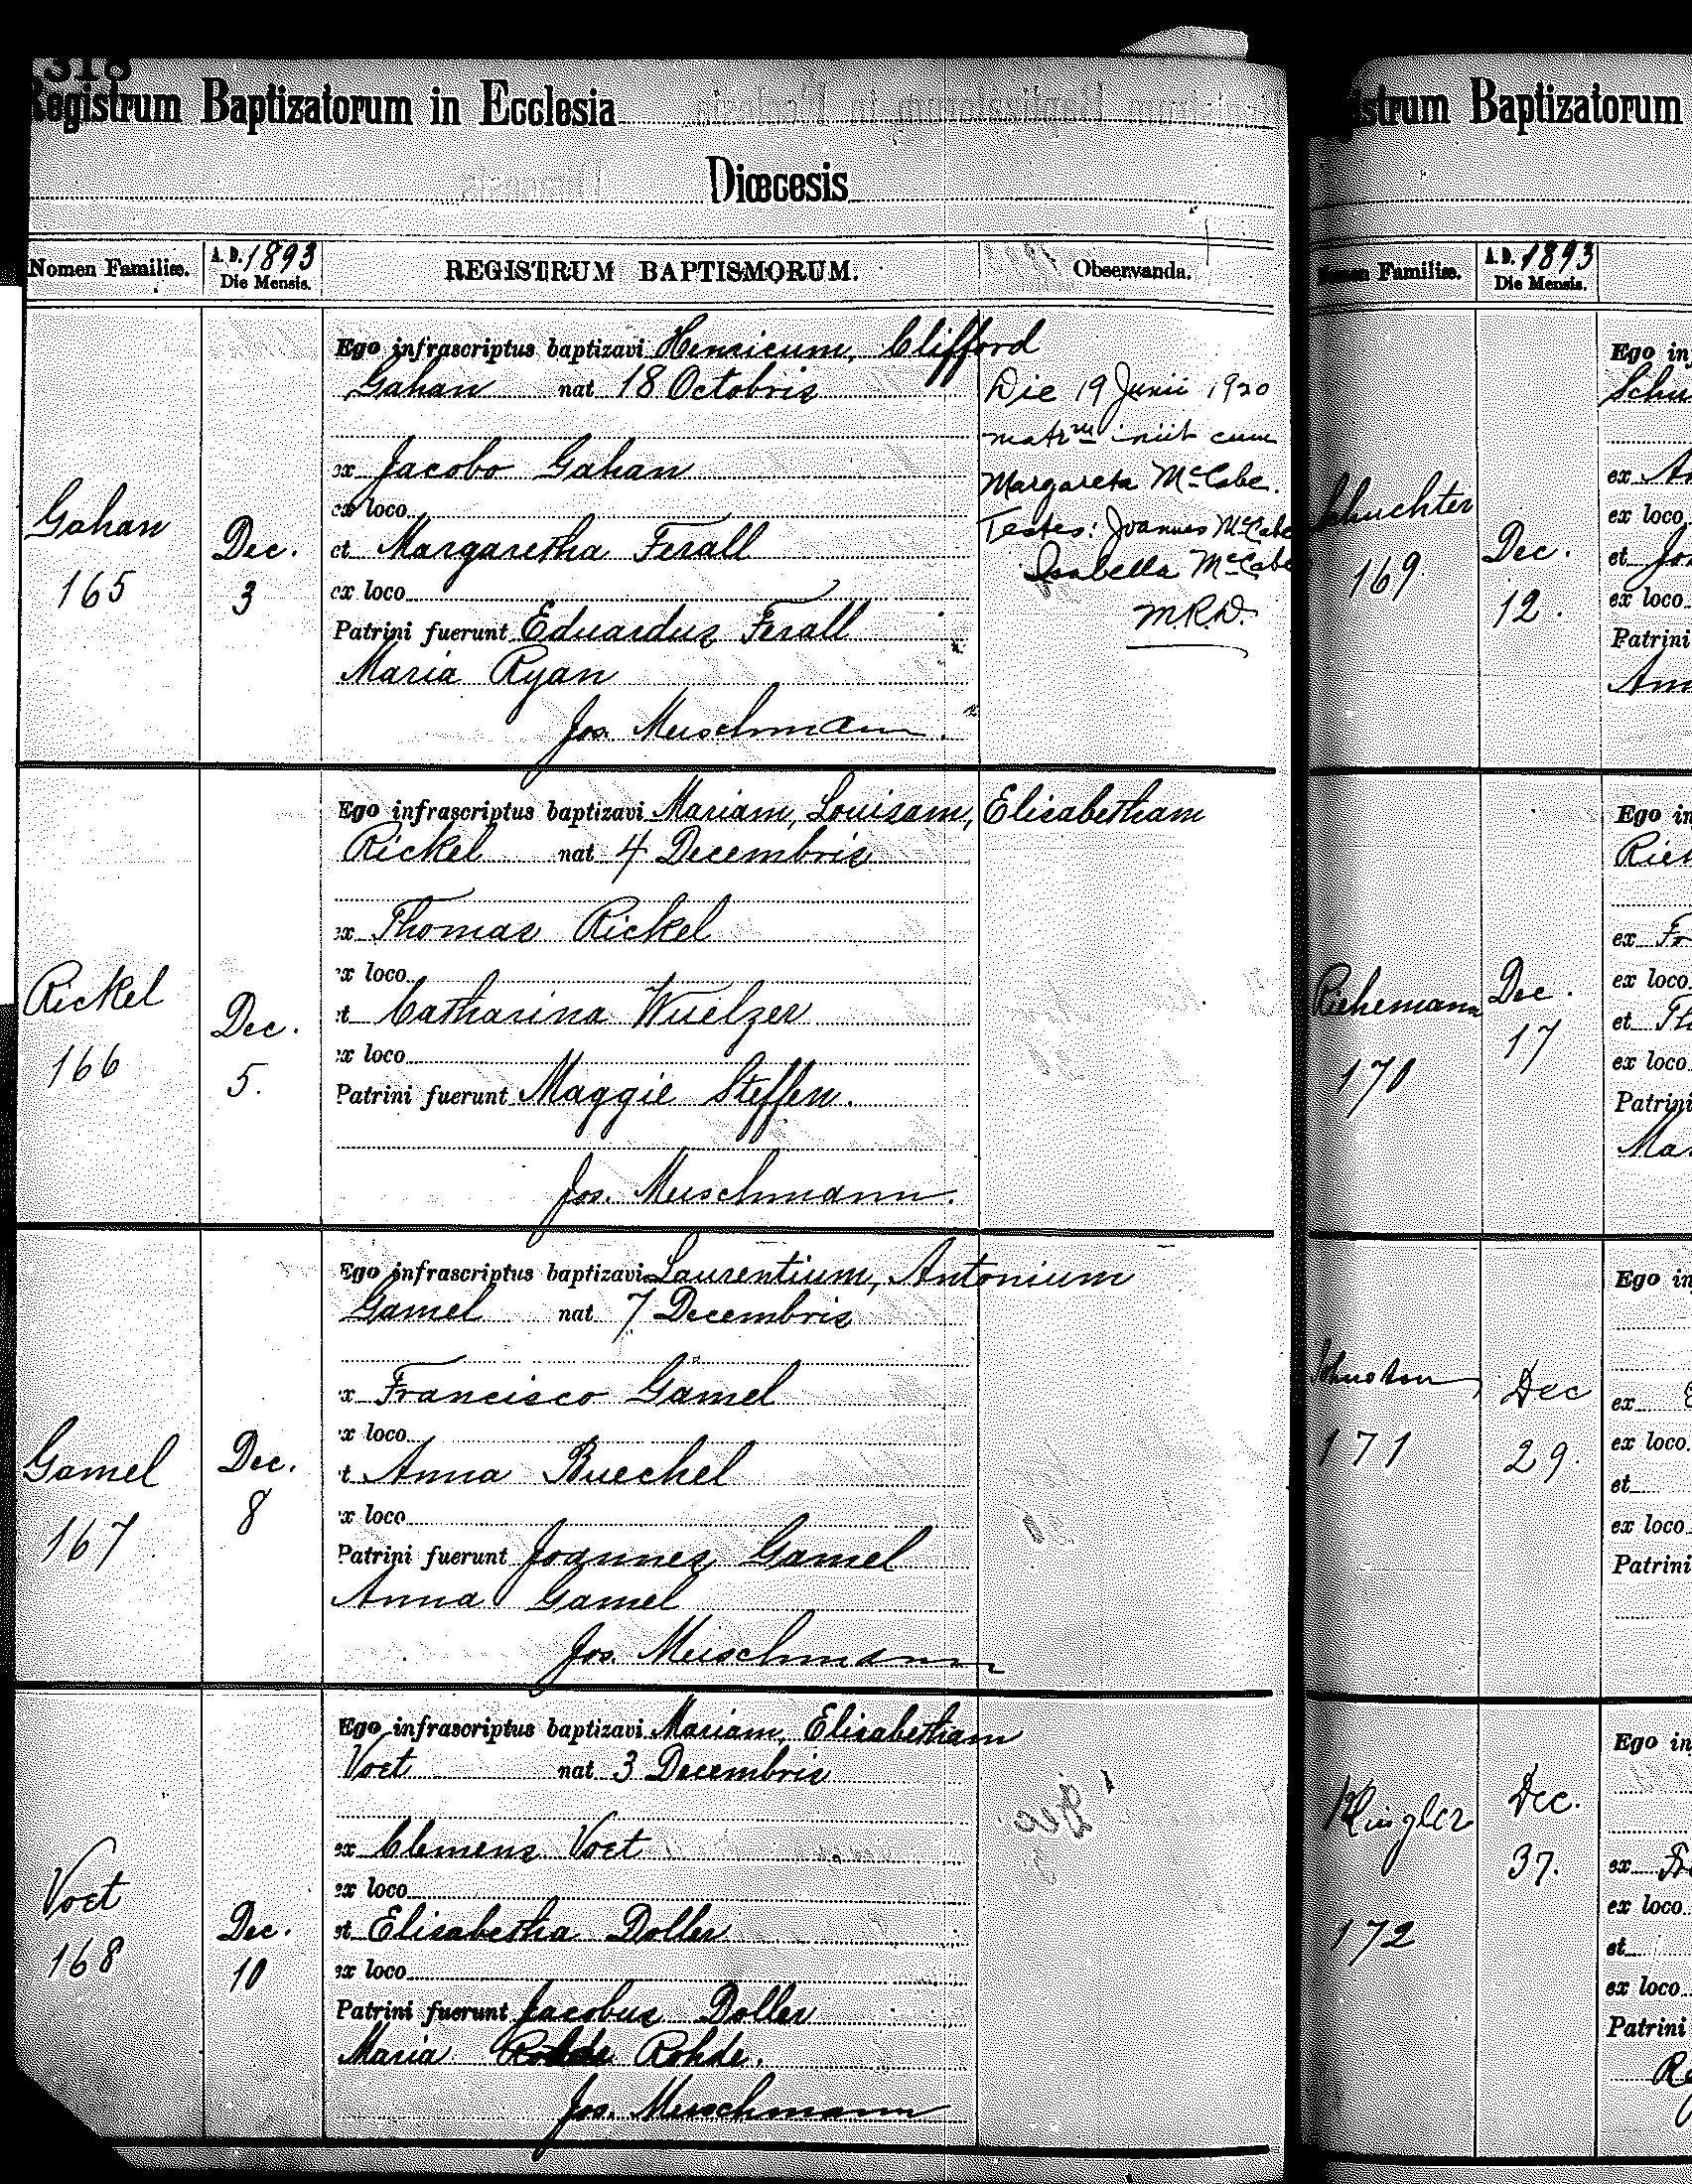 318
Registrum Baptizatorum in Ecclesia
Diœcesis
Nomen Familiæ.
A. D. 1893
Die Mensis.
REGISTRUM BAPTISMORUM.
Observanda.
Gahan
165
Dec.
3
Ego infrascriptus baptizavi Henricum, Clifford
Gahan nat 18 Octobris
ex Jacobo Gahan
ex loco
et Margaretha Ferall
ex loco
Patrini fuerunt Eduardus Ferall
Maria Ryan
Jos. Meuschmann.
Die 19 Junii 1920
matrm iniit cum
Margareta McCabe.
Testes: Joannes McCabe
Isabella McCabe
M.R.D.
Rickel
166
Dec.
5.
Ego infrascriptus baptizavi Mariam, Louisam, Elisabetham
Rickel nat 4 Decembris
ex Thomas Rickel
ex loco
et Catharina Wuelzer
ex loco
Patrini fuerunt Maggie Steffen.
Jos. Meuschmann.
Gamel
167
Dec.
8
Ego infrascriptus baptizavi Laurentium, Antonium
Gamel nat 7 Decembris
ex Francisco Gamel
ex loco
et Anna Buechel
ex loco
Patrini fuerunt Joannes Gamel
Anna Gamel
Jos. Meuschmann
Voet
168
Dec.
10
Ego infrascriptus baptizavi Mariam, Elisabetham
Voet nat 3 Decembris
ex Clemens Voet
ex loco
et Elisabetha Doller
ex loco
Patrini fuerunt Jacobus Doller
Maria Rohde.
Jos. Meuschmann
istrum Baptizatorum
Nomen Familiæ.
A. D. 1893
Die Mensis.
Schuchter
169
Dec.
12.
Ego in
Schu
ex An
ex loco
et Jos
ex loco
Patrini
Ann
Riehemann
170
Dec.
17
Ego in
Rieh
ex Fr
ex loco
et Th
ex loco
Patrini
Mar
171
Dec
29.
Ego in
ex
ex loco
et
ex loco
Patrini
Klingler
172
Dec.
37.
Ego in
ex
ex loco
et
ex loco
Patrini